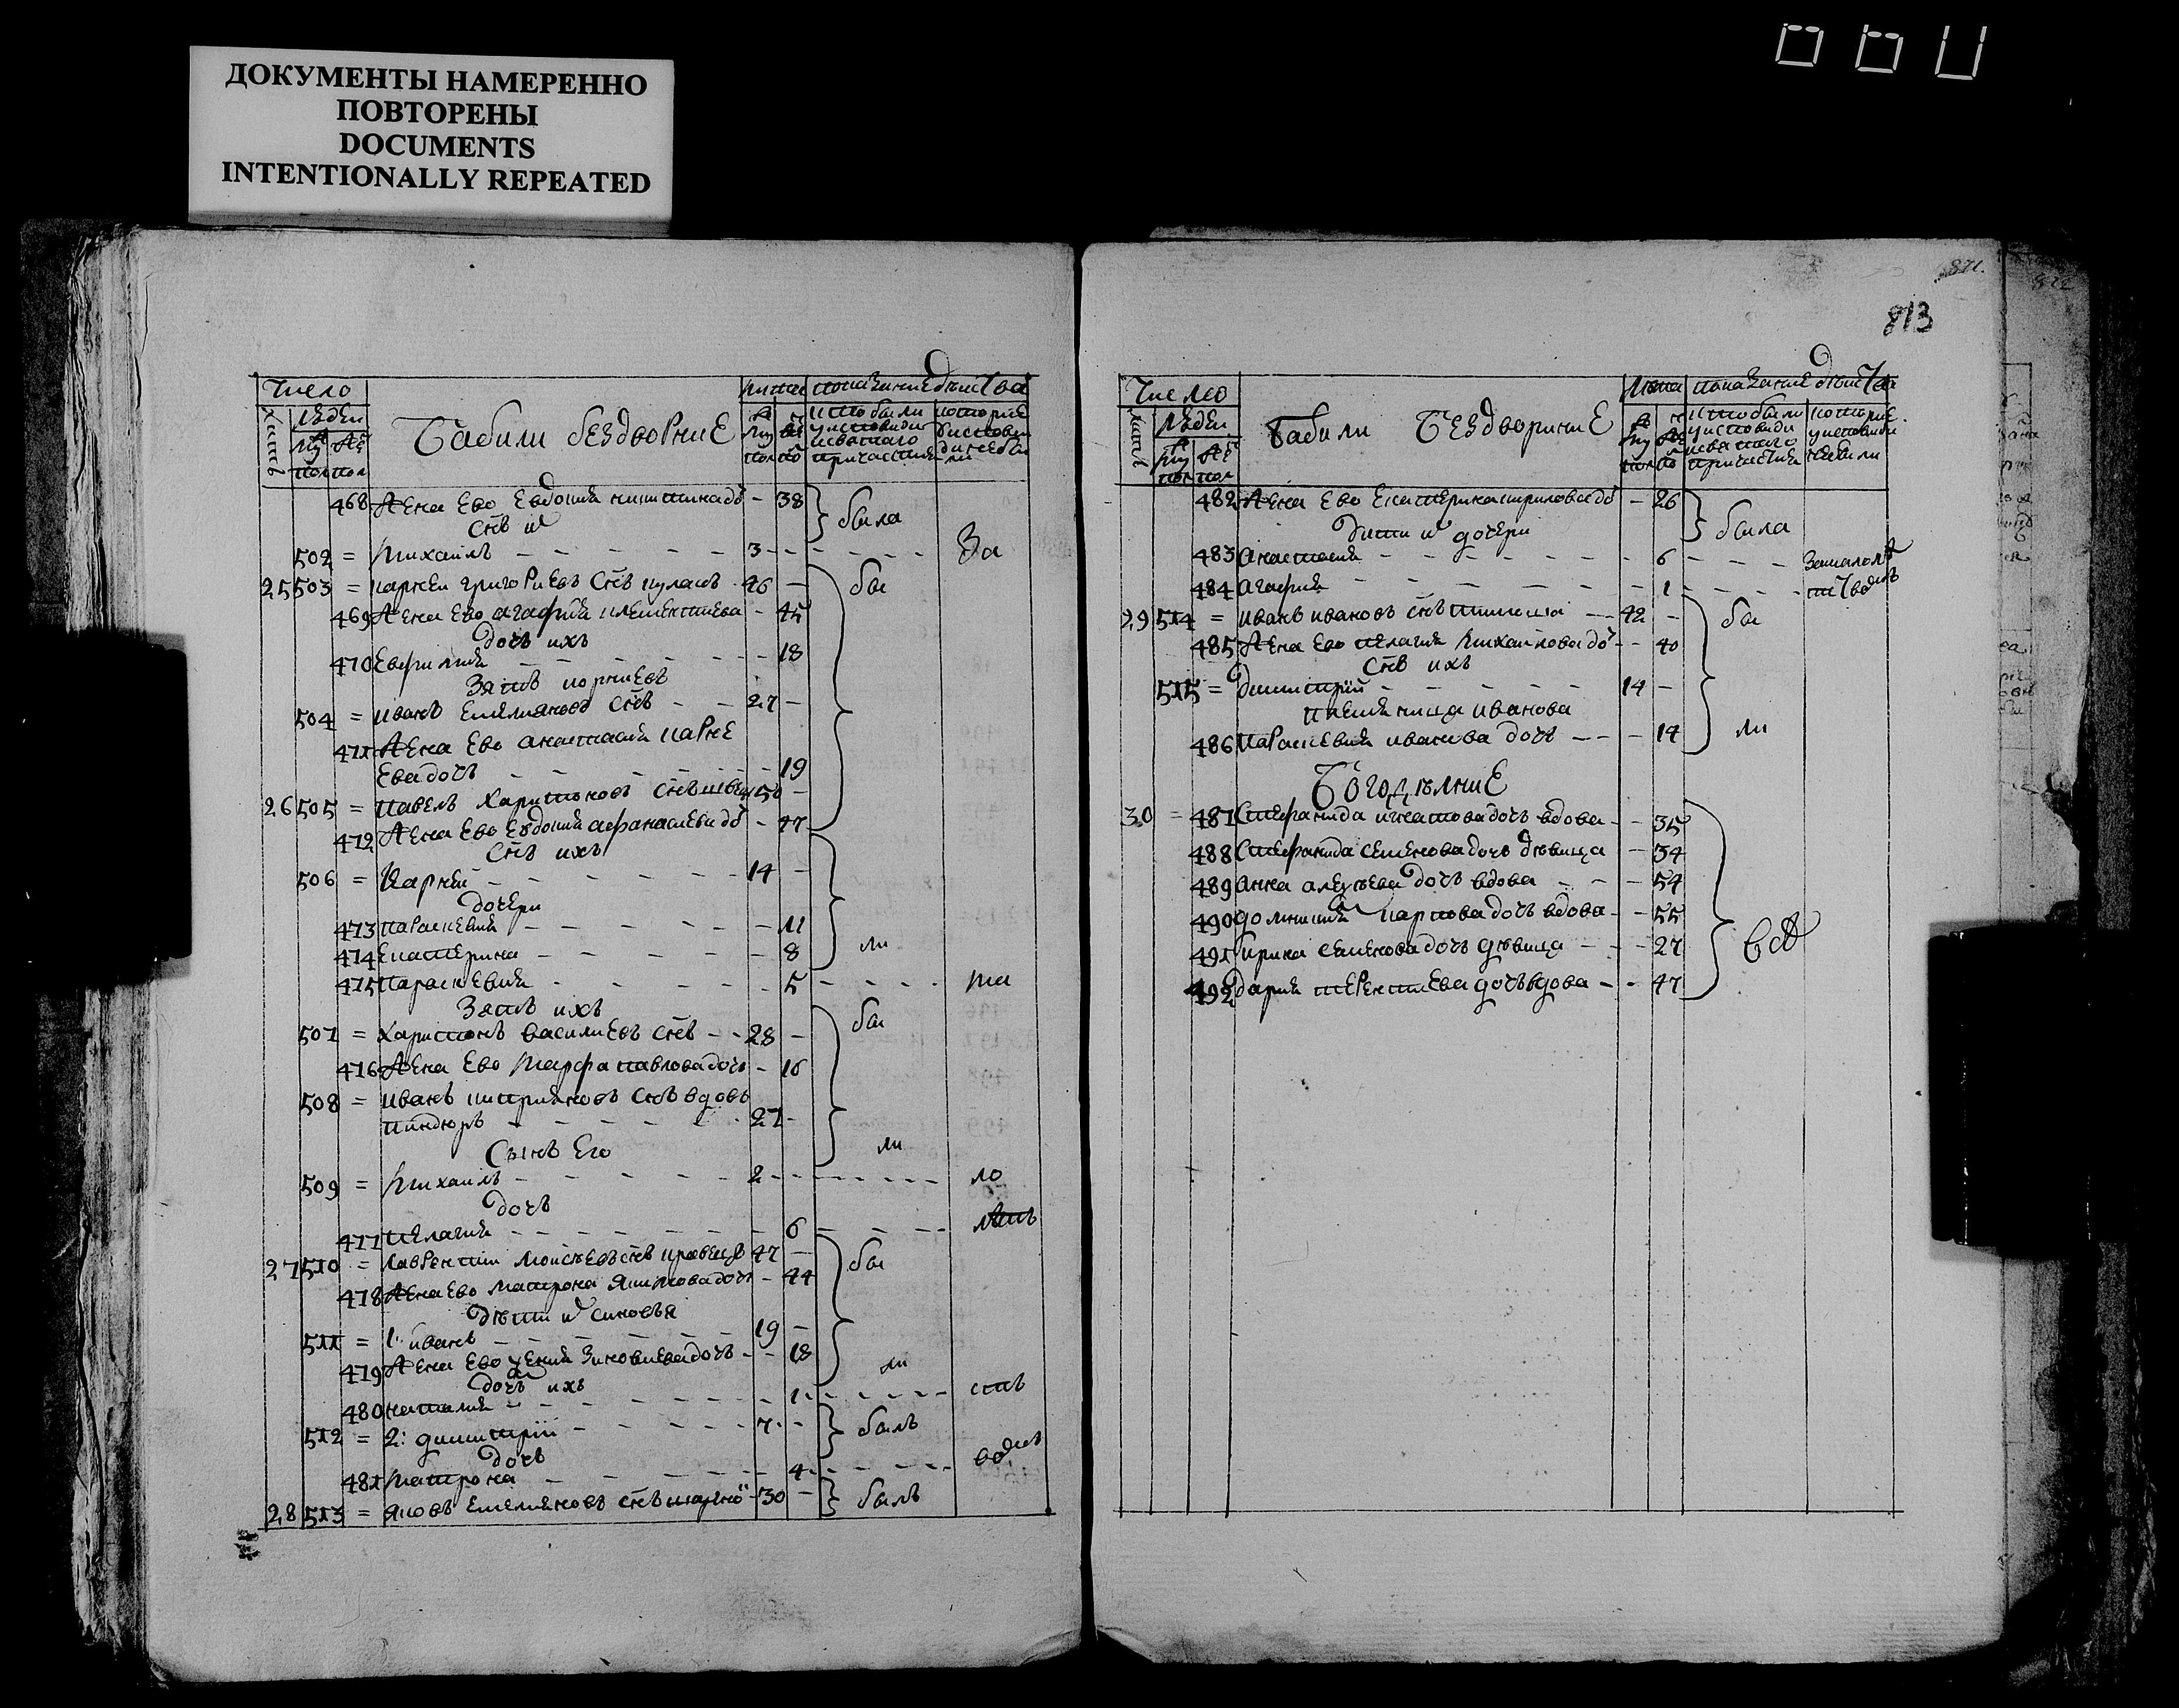 ДОКУМЕНТЫ НАМЕРЕННО
ПОВТОРЕНЫ
DOCUMENTS
INTENTIONALLY REPEATED
871.
822
813
Число
людеи
лита
показание дѣиства
Бабили бездворние
468 Жена Ево Евдокия никитина до - 38 была
Снъ и
502 = Михаилъ - 3 - За
25 503 = карнеи григориевъ Снъ кулакъ 46 - бы
469 Жена Ево агафия климентиева - 45
дочь ихъ
470 Евфимия - 18
Зять корниевъ
504 = иванъ Емелияновъ Снъ - 27 -
471 Жена Ево анастасия карне
Ева дочь - 19
26 505 = павелъ Харитоновъ Снъ 50 -
472 Жена Ево Евдокия афанасиева до - 47
Снъ ихъ
506 = Карнеи - 14 -
дочери
473 параскевия - 11
474 Екатерина - 8 ли
475 параскевия - 5 - ма
Зять ихъ
507 = Харитонъ василиевъ Снъ - 28 - бы
476 Жена Ево Марфа павлова дочь - 16
508 = иванъ киприяновъ Снъ вдовъ
пиндюръ - 27 -
Сынъ Его ли
509 = Михаилъ - 2 - ло
дочь
477 пелагия - 6 - лѣтъ
27 510 = лаврентии моисѣевъ снъ кравецъ 47 - бы
478 Жена Ево матрона якимова дочь - 44
дѣти и синовья
511 = 1: иванъ - 19 -
479 Жена Ево ксения Зиновиева дочь - 18 ли
дочь ихъ
480 наталия - 1 - ств
512 = 2: димитрии - 7 - былъ
дочь
481 матрона - 4 -
28 513 = яковъ Емелияновъ снъ 30 - былъ
Число
людеи
лита
показание дѣиства
Бабили Бездворние
482 Жена Ево Екатерина кирилова до - 26 была
дити и дочери
483 анастасия - 6 - Замалолѣ
484 агафия - 1 -
29 514 = иванъ ивановъ снъ 42 - бы
485 Жена Ево пелагия Михаилова до - 40
Снъ ихъ
515 = димитрии - 14 -
племяница иванова
486 Параскевия иванова дочь - 14 ли
Богодѣлние
30 = 487 Стефанида игнатова дочь вдова - 35
488 Стефанида семенова дочь дѣвица - 34
489 анна алексѣева дочь вдова - 54
490 домникия карпова дочь вдова - 55
491 ирина семенова дочь дѣвица - 27 всѣ
492 дария терентиева дочь вдова - 47